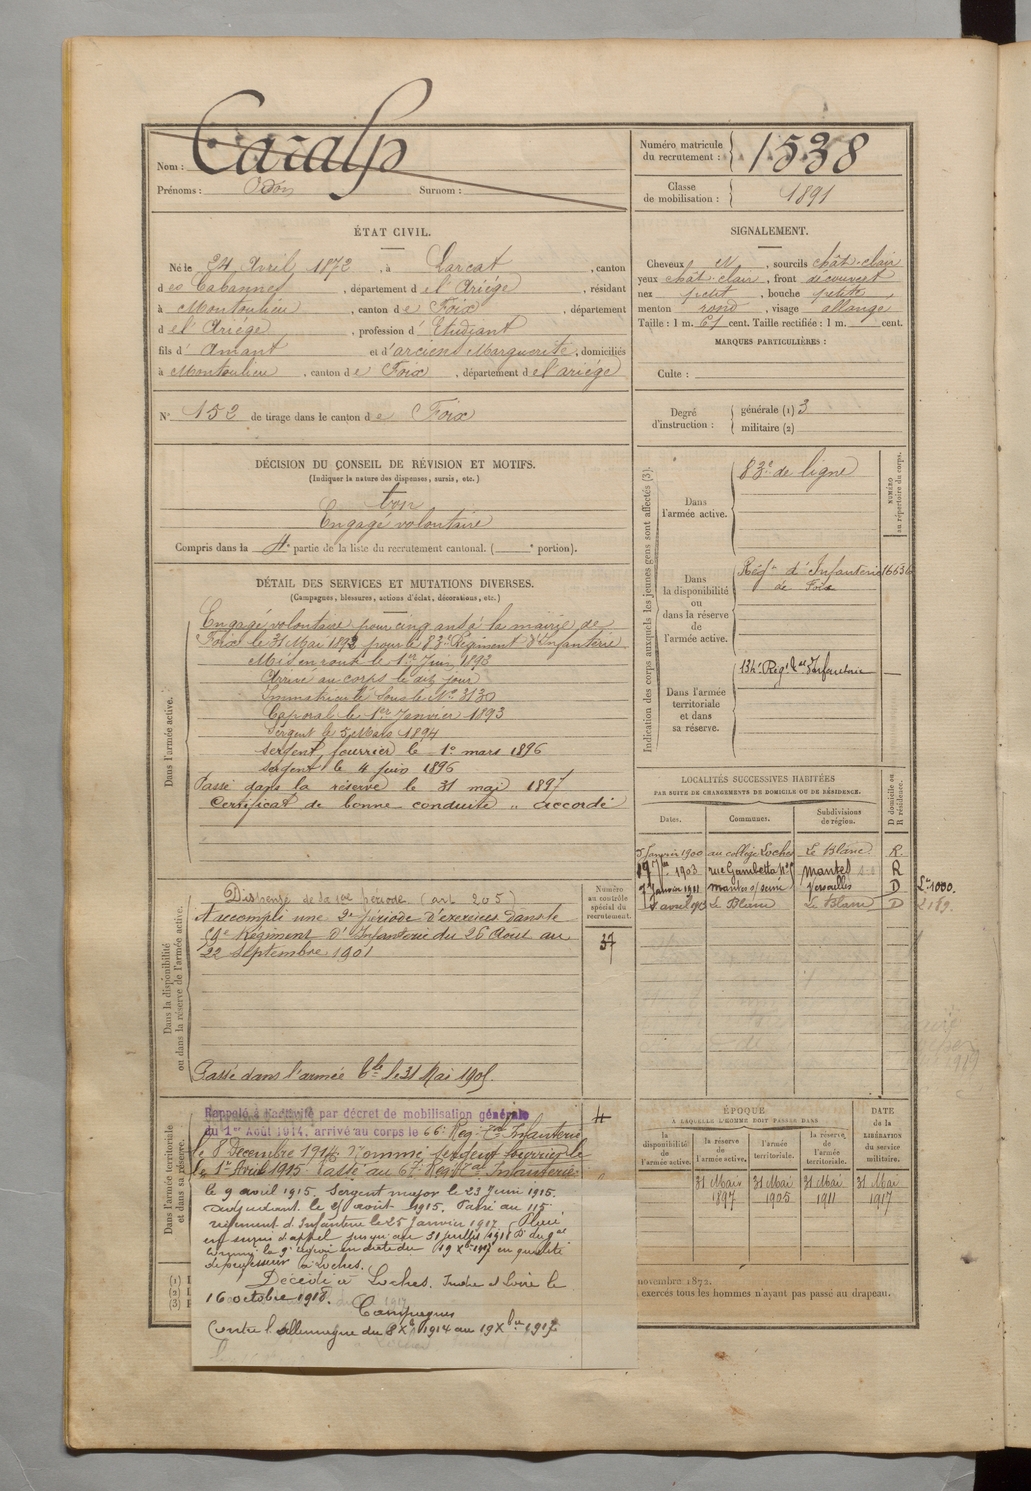 Nom : Caralp
Prénoms : Odon Surnom :
Numéro matricule du recrutement : 1538
Classe de mobilisation : 1891
ÉTAT CIVIL.
Né le 24 Avril 1872, à Larcat, canton
des Cabannes, département de l'Ariège, résidant
à Montoulieu, canton de Foix, département
de l'Ariège, profession d'Etudiant
fils d'Amant et d'arciens Marguerite, domiciliés
à Montoulieu, canton de Foix, département de l'ariège
N° 152 de tirage dans le canton de Foix
SIGNALEMENT.
Cheveux , sourcils chât-clair
yeux chât clair, front découvert
nez petit, bouche petite
menton rond, visage allongé
Taille : 1 m. 61 cent. Taille rectifiée : 1 m. cent.
MARQUES PARTICULIÈRES :
Culte :
Degré d'instruction : générale (1) 3
militaire (2)
DÉCISION DU CONSEIL DE RÉVISION ET MOTIFS.
(Indiquer la nature des dispenses, sursis, etc.)
bon
Engagé volontaire
Compris dans la 4e partie de la liste du recrutement cantonal. ( e portion).
DÉTAIL DES SERVICES ET MUTATIONS DIVERSES.
(Campagnes, blessures, actions d'éclat, décorations, etc.)
Dans l'armée active.
Engagé volontaire pour cinq ans à la mairie de
Foix le 31 Mai 1892 pour le 83e Régiment d'Infanterie
Mis en route le 1er Juin 1893
Arrivé au corps le dit jour
Immatriculé sous le N° 3130
Caporal le 1er Janvier 1893
Sergent le 5 Mars 1894
sergent fourrier le 1e mars 1896
sergent le 4 juin 1896
Passé dans la réserve le 31 mai 1897
Certificat de bonne conduite " accordé
Indication des corps auxquels les jeunes gens sont affectés (3).
NUMÉRO au répertoire du corps.
Dans l'armée active.
83e de ligne
Dans la disponibilité ou dans la réserve de l'armée active.
Régt d'Infanterie
de Foix
Dans l'armée territoriale et dans sa réserve.
134e Régt tal Infanterie
LOCALITÉS SUCCESSIVES HABITÉES
PAR SUITE DE CHANGEMENTS DE DOMICILE OU DE RÉSIDENCE.
Dates. Communes. Subdivisions de région. D domicile ou R résidence.
5 Janvier 1900 au collège Loches Le Blanc R.
19 7bre 1903 rue Gambetta N° Mantes R
7 Janvier 1911 Mantes s/ Seine Versailles D
avril 1913 Le Blanc Le Blanc D
Dans la disponibilité ou dans la réserve de l'armée active.
Numéro au contrôle spécial du recrutement.
37
Dispensé de la 1re période (art. 205)
A accompli une 2e période d'exercices dans le
Régiment d'Infanterie du 26 Août au
22 septembre 1901
Passé dans l'armée tle le 31 Mai 1905.
Dans l'armée territoriale et dans sa réserve.
Rappelé à l'activité par décret de mobilisation générale
du 1er Août 1914. arrivé au corps le 66e Rég. tal Infanterie
le 8 Décembre 1914 Nommé sergent fourrier le
le 1er Avril 1915 Passé au 67e Régt tal Infanterie
le 9 avril 1915. Sergent major le 23 Juin 1915.
Adjudant le août 1915. Passé au 115
régiment d'Infanterie le 25 Janvier 1917. Placé
en sursis d'appel jusqu'au 31 juillet 1918
la 9e région en date du 19 Xbre 1917 en qualité
de professeur à Loches.
Décédé à Loches. Indre et Loire le
16 octobre 1918.
Campagnes
Contre l'Allemagne du 8 Xbre 1914 au 19 Xbre 1917
ÉPOQUE
À LAQUELLE L'HOMME DOIT PASSER DANS
DATE DE LA LIBÉRATION DU service militaire.
la disponibilité de l'armée active. la réserve de l'armée active. l'armée territoriale. la réserve de l'armée territoriale.
31 Mai 1897 31 Mai 1905 31 Mai 1911 31 Mai 1917
novembre 1872.
exercés tous les hommes n'ayant pas passé au drapeau.
(1)
(2)
(3)